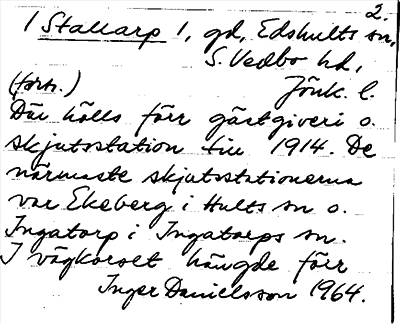 2.
1 Stallarp 1, gd, Edshults sn,
S. Vedbo hd,
(forts.) Jönk. l.
Där hölls förr gästgiveri o.
skjutsstation till 1914. De
närmaste skjutsstationerna
var Ekeberg i Hults sn o.
Ingatorp i Ingatorps sn.
I vägkorset hängde förr
Inger Danielsson 1964.